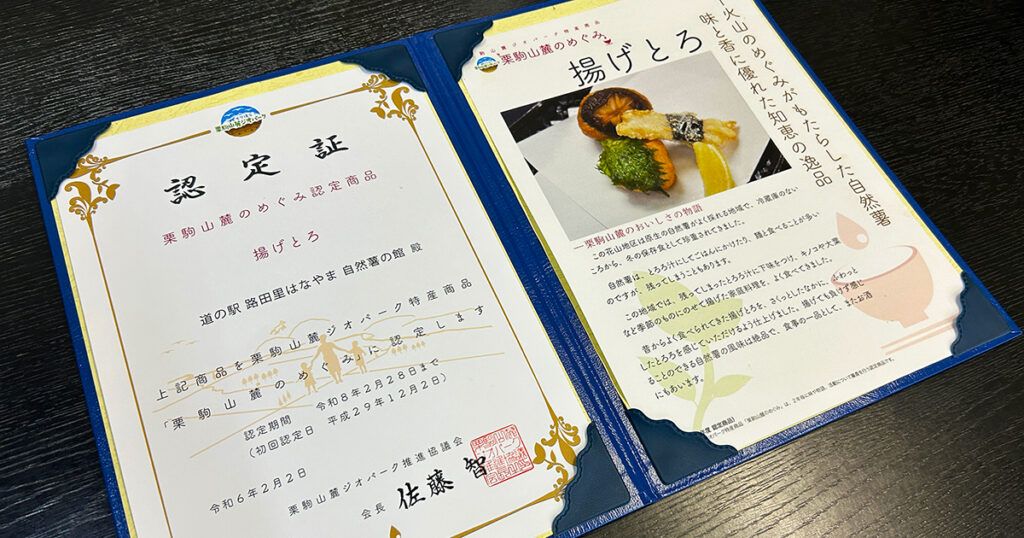 栗駒山麓ジオパーク
認定証
栗駒山麓のめぐみ認定商品
揚げとろ
道の駅 路田里はなやま 自然薯の館 殿
上記商品を栗駒山麓ジオパーク特産商品
「栗駒山麓のめぐみ」に認定します
認定期間 令和8年2月28日まで
(初回認定日 平成29年12月2日)
令和6年2月2日
栗駒山麓ジオパーク推進協議会
会長 佐藤 智
駒山麓ジオパーク特産商品
栗駒山麓のめぐみ
揚げとろ
火山のめぐみがもたらした自然薯
味と香に優れた知恵の逸品
―栗駒山麓のおいしさの物語
この花山地区は原生の自然薯がよく採れる地域で、冷蔵庫のない
ころから、冬の保存食として珍重されてきました。
自然薯は、とろろ汁にしてごはんにかけたり、麺と食べることが多い
のですが、残ってしまうこともあります。
この地域では、残ってしまったとろろ汁に下味をつけ、キノコや大葉
など季節のものにのせて揚げた家庭料理を、よく食べてきました。
昔からよく食べられてきた揚げとろを、さくっとしたなかに、ふわっと
したとろろを感じていただけるよう仕上げました。揚げても負けず感じ
ることのできる自然薯の風味は絶品で、食事の一品として、またお酒
にもあいます。